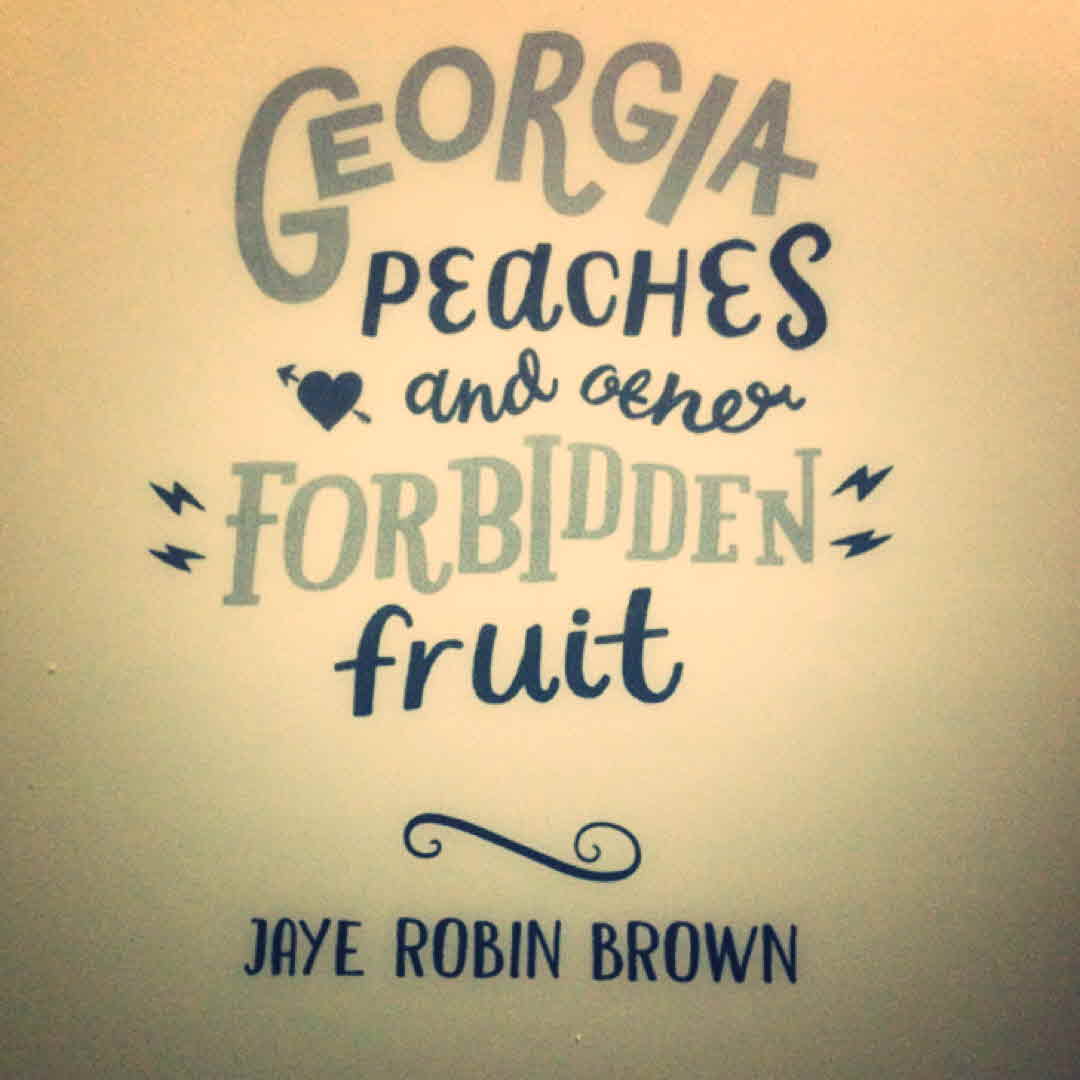 GEORGIA
PEaCHES
and other
FORBIDDEN
fruit
JAYE ROBIN BROWN